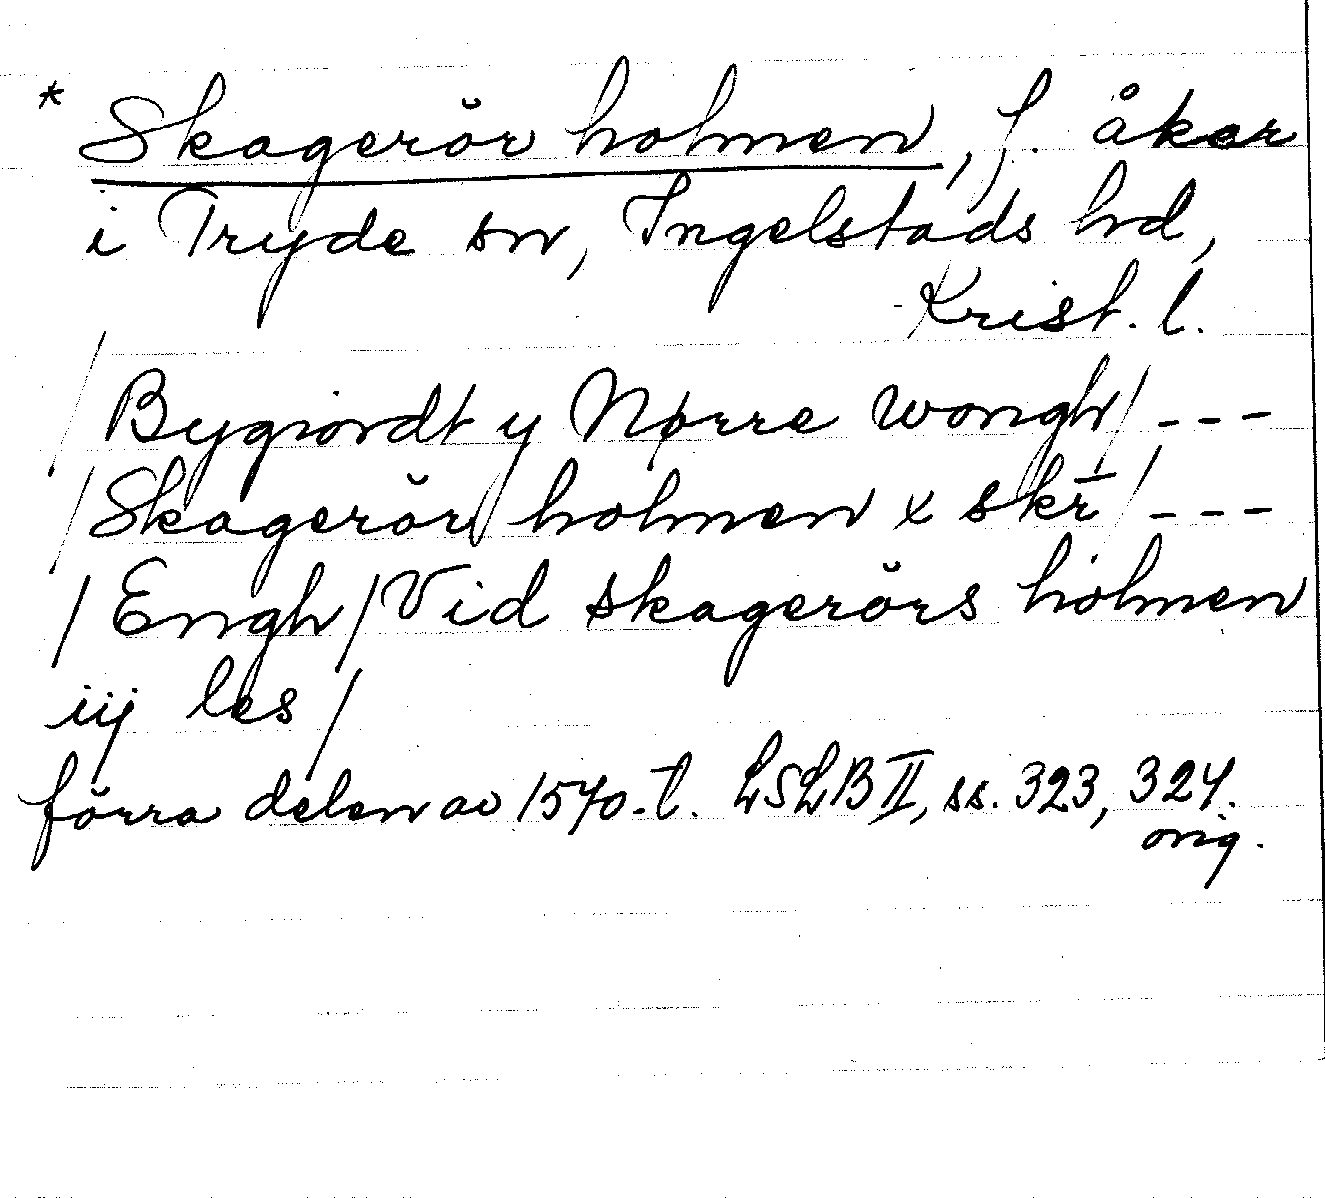 * Skagerŏr holmen, f. åker
i Tryde sn, Ingelstads hd,
Krist. l.
/ Bygiordt y Nørre wongh / - - -
/ Skagerŏr holmen x skr̄ / - - -
/ Engh / Vid skagerŏrs holmen
iij les /
förra delen av 1570-t. LSLB II, ss. 323, 324.
orig.